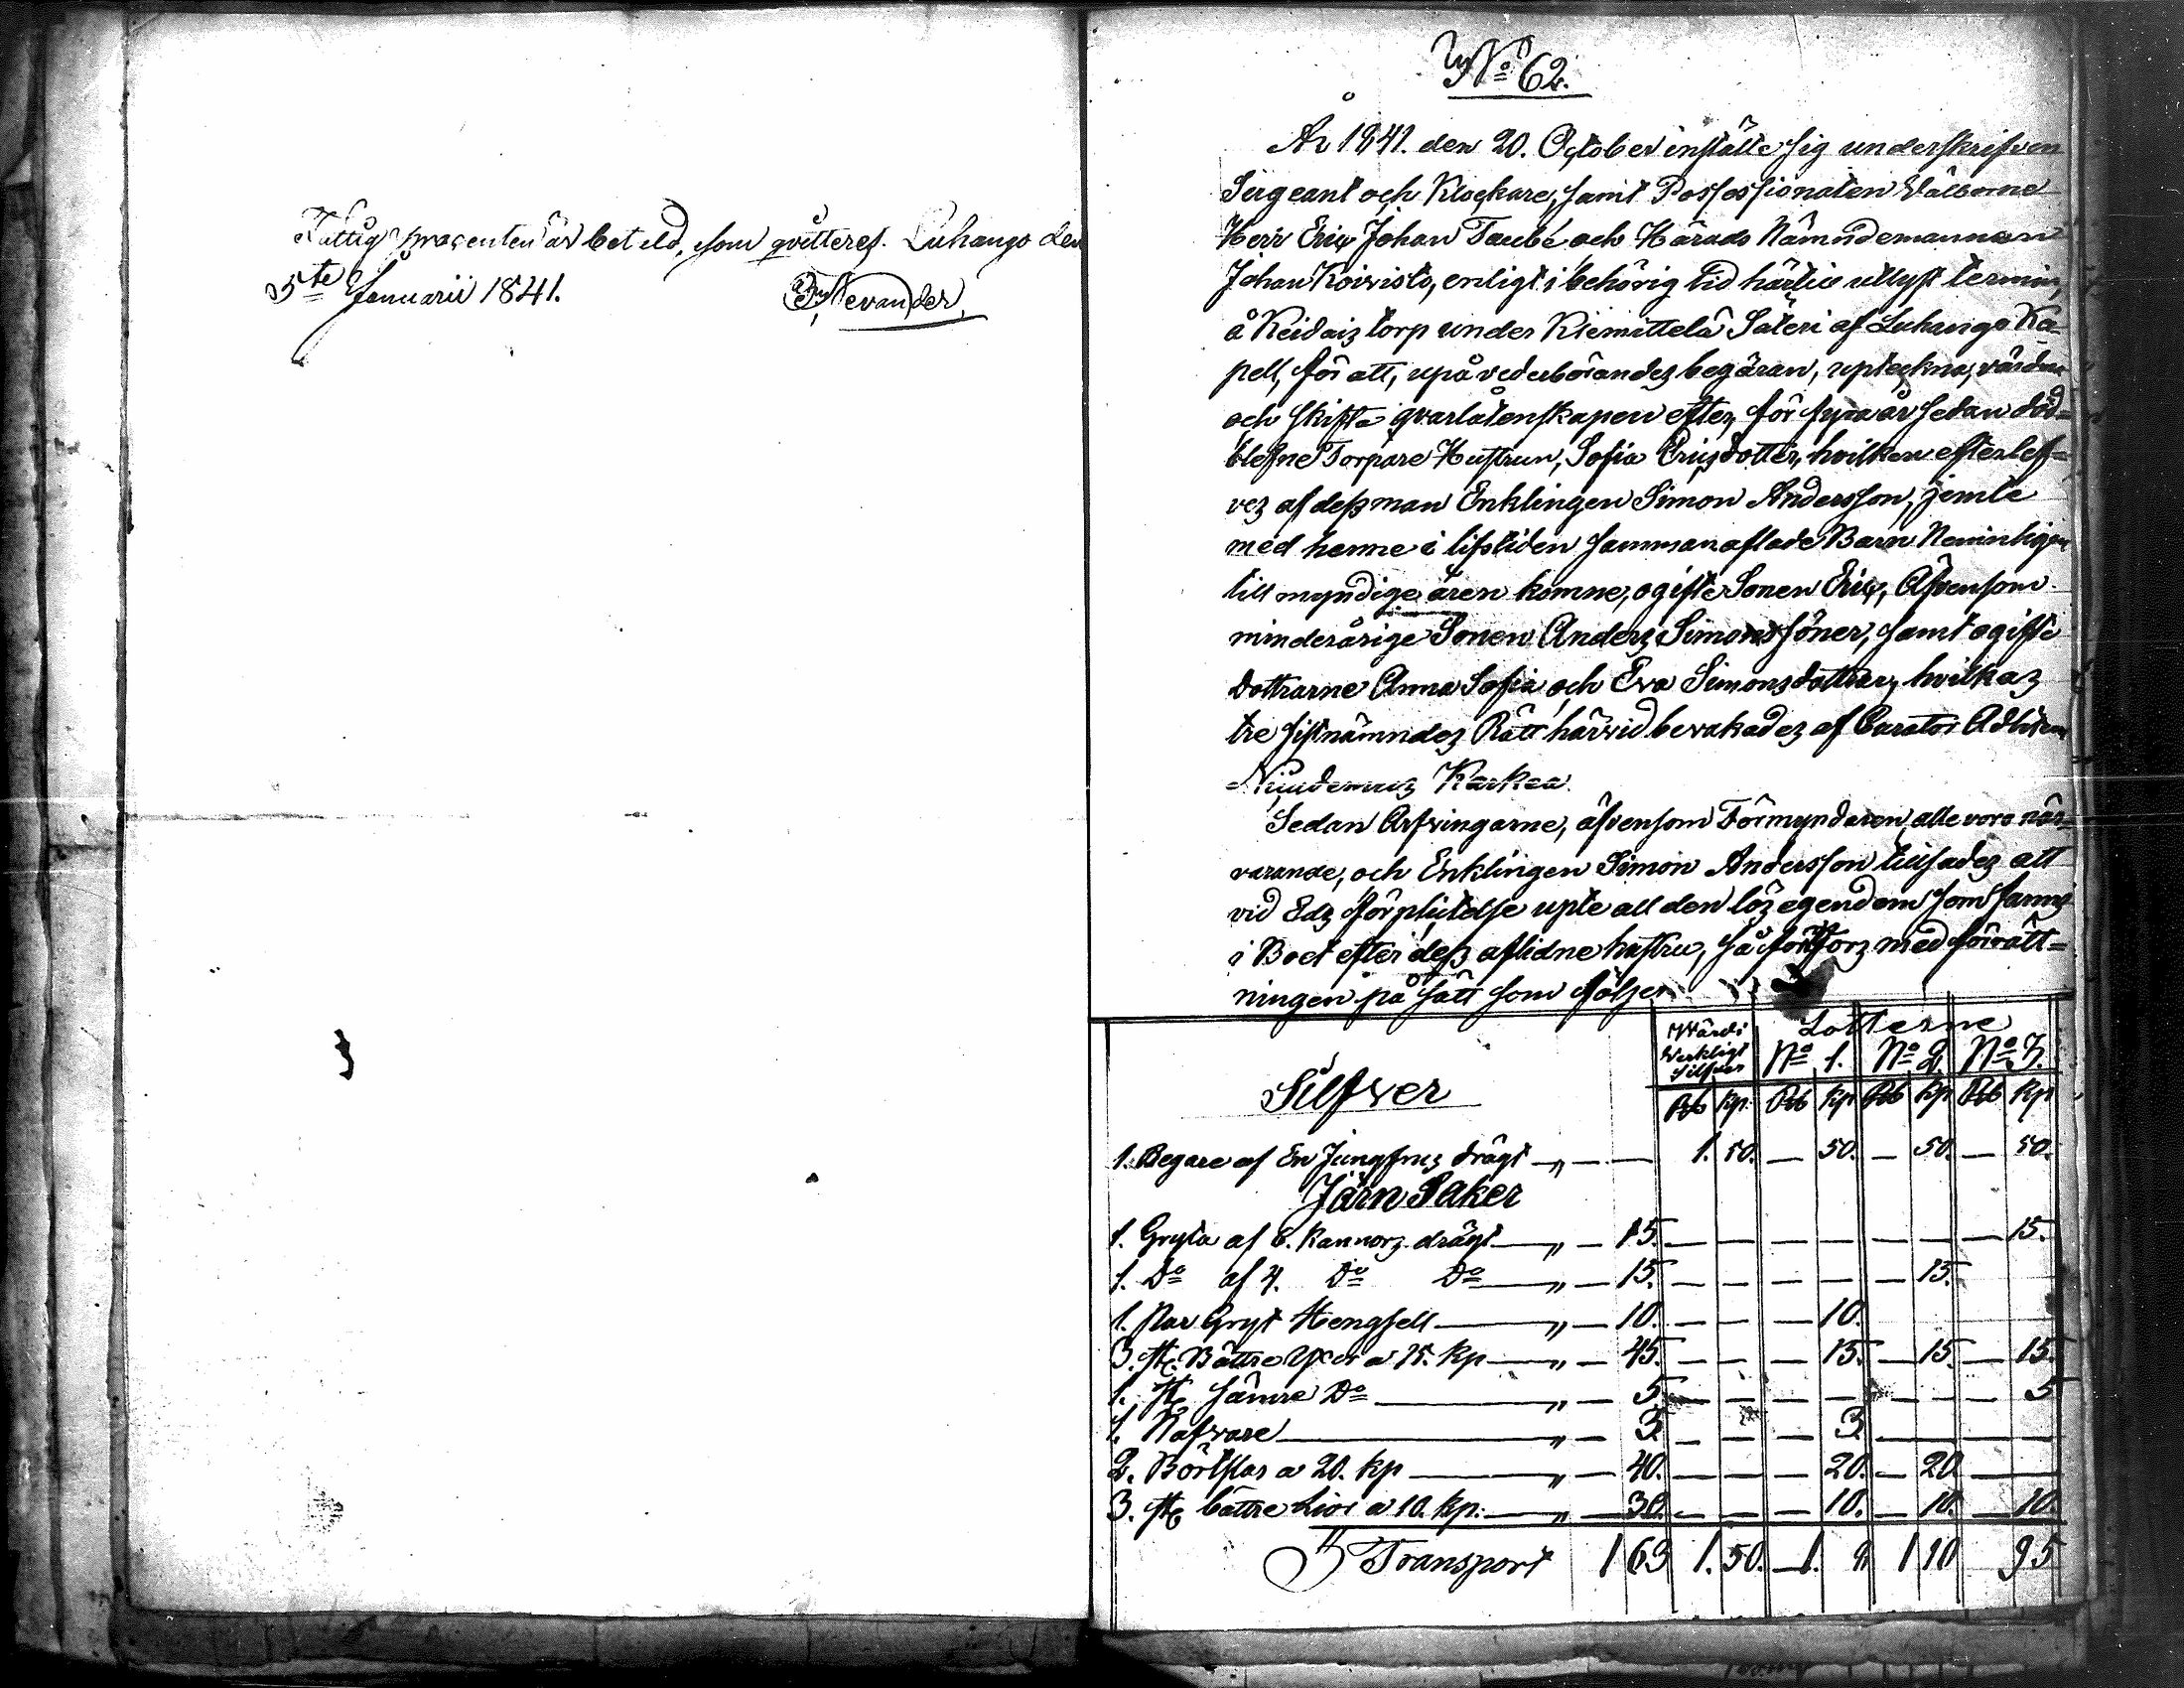 Fattig procenten är betald, som qvitteras. Luhango den
5te Januarii 1841.
Nevander.
No 62.
År 1841. den 20. October instälte sig underskrifven
Sergeant och Klockare, samt Possessionaten Välborne
Herr Eric Johan Taube och Härads Nämndemannen
Johan Koivisto, enligt i behörig tid härtil utlyst termin,
å Keidais torp under Kiemittelä Säteri af Luhango Ka-
pell, för att, uppå vederbörandes begäran, upteckna, värdera
och skifta qvarlåtenskapen efter, för fyra år sedan död-
blefne Torpare Hustrun, Sofia Ericsdotter, hvilken efterlef-
ves af dess man Enklingen Simon Andersson, jemte
med henne i lifstiden sammanaflade Barn Nemligen
till myndige åren komne, ogifte Sonen Eric, Äfvensom
minderårige Sonen Anders Simonssöner, samt ogifte
dottrarne Anna Sofia och Eva Simonsdöttrar, hvilkas
tre sistnämndes Rätt härvid bevakades af Curator Adlitem
Karkea.
Sedan Arfvingarne, äfvensom Förmyndaren, alle voro när-
varande, och Enklingen Simon Andersson tilsades att
vid Eds förplictelse upte all den lösegendom som fanns
i Boet efter dess aflidne hustru, så fortfors med förrätt-
ningen på sätt som följer
Silfver Wärdi Verkligt Silfver Lotterne No 1. No 2. No 3.
Rub Kp. Rub Kp Rub Kp Rub Kp
1. Begare af En Jungfrus drägt — „ — 1. 50. — 50. — 50. — 50.
Järn Saker
1. Gryta af 6. Kannors drägt — „ — 15. — 15.
1. Do af 4. Do Do — „ — 15. — 15.
1. Par Gryt Hengsell — „ — 10. — 10.
3. st. Bättre Yxor a 15. Kp — „ — 45. — 15. — 15. — 15.
1. st. sämre Do — „ — 5. — 5
1. Nafvare — „ — 3. — 3.
2. a 20. kp — „ — 40. — 20. — 20
3. st. bättre Lior a 10. kp. — „ — 30. — 10. — 10. — 10.
Transport 1 63 1. 50. 1. 8 1 10 95